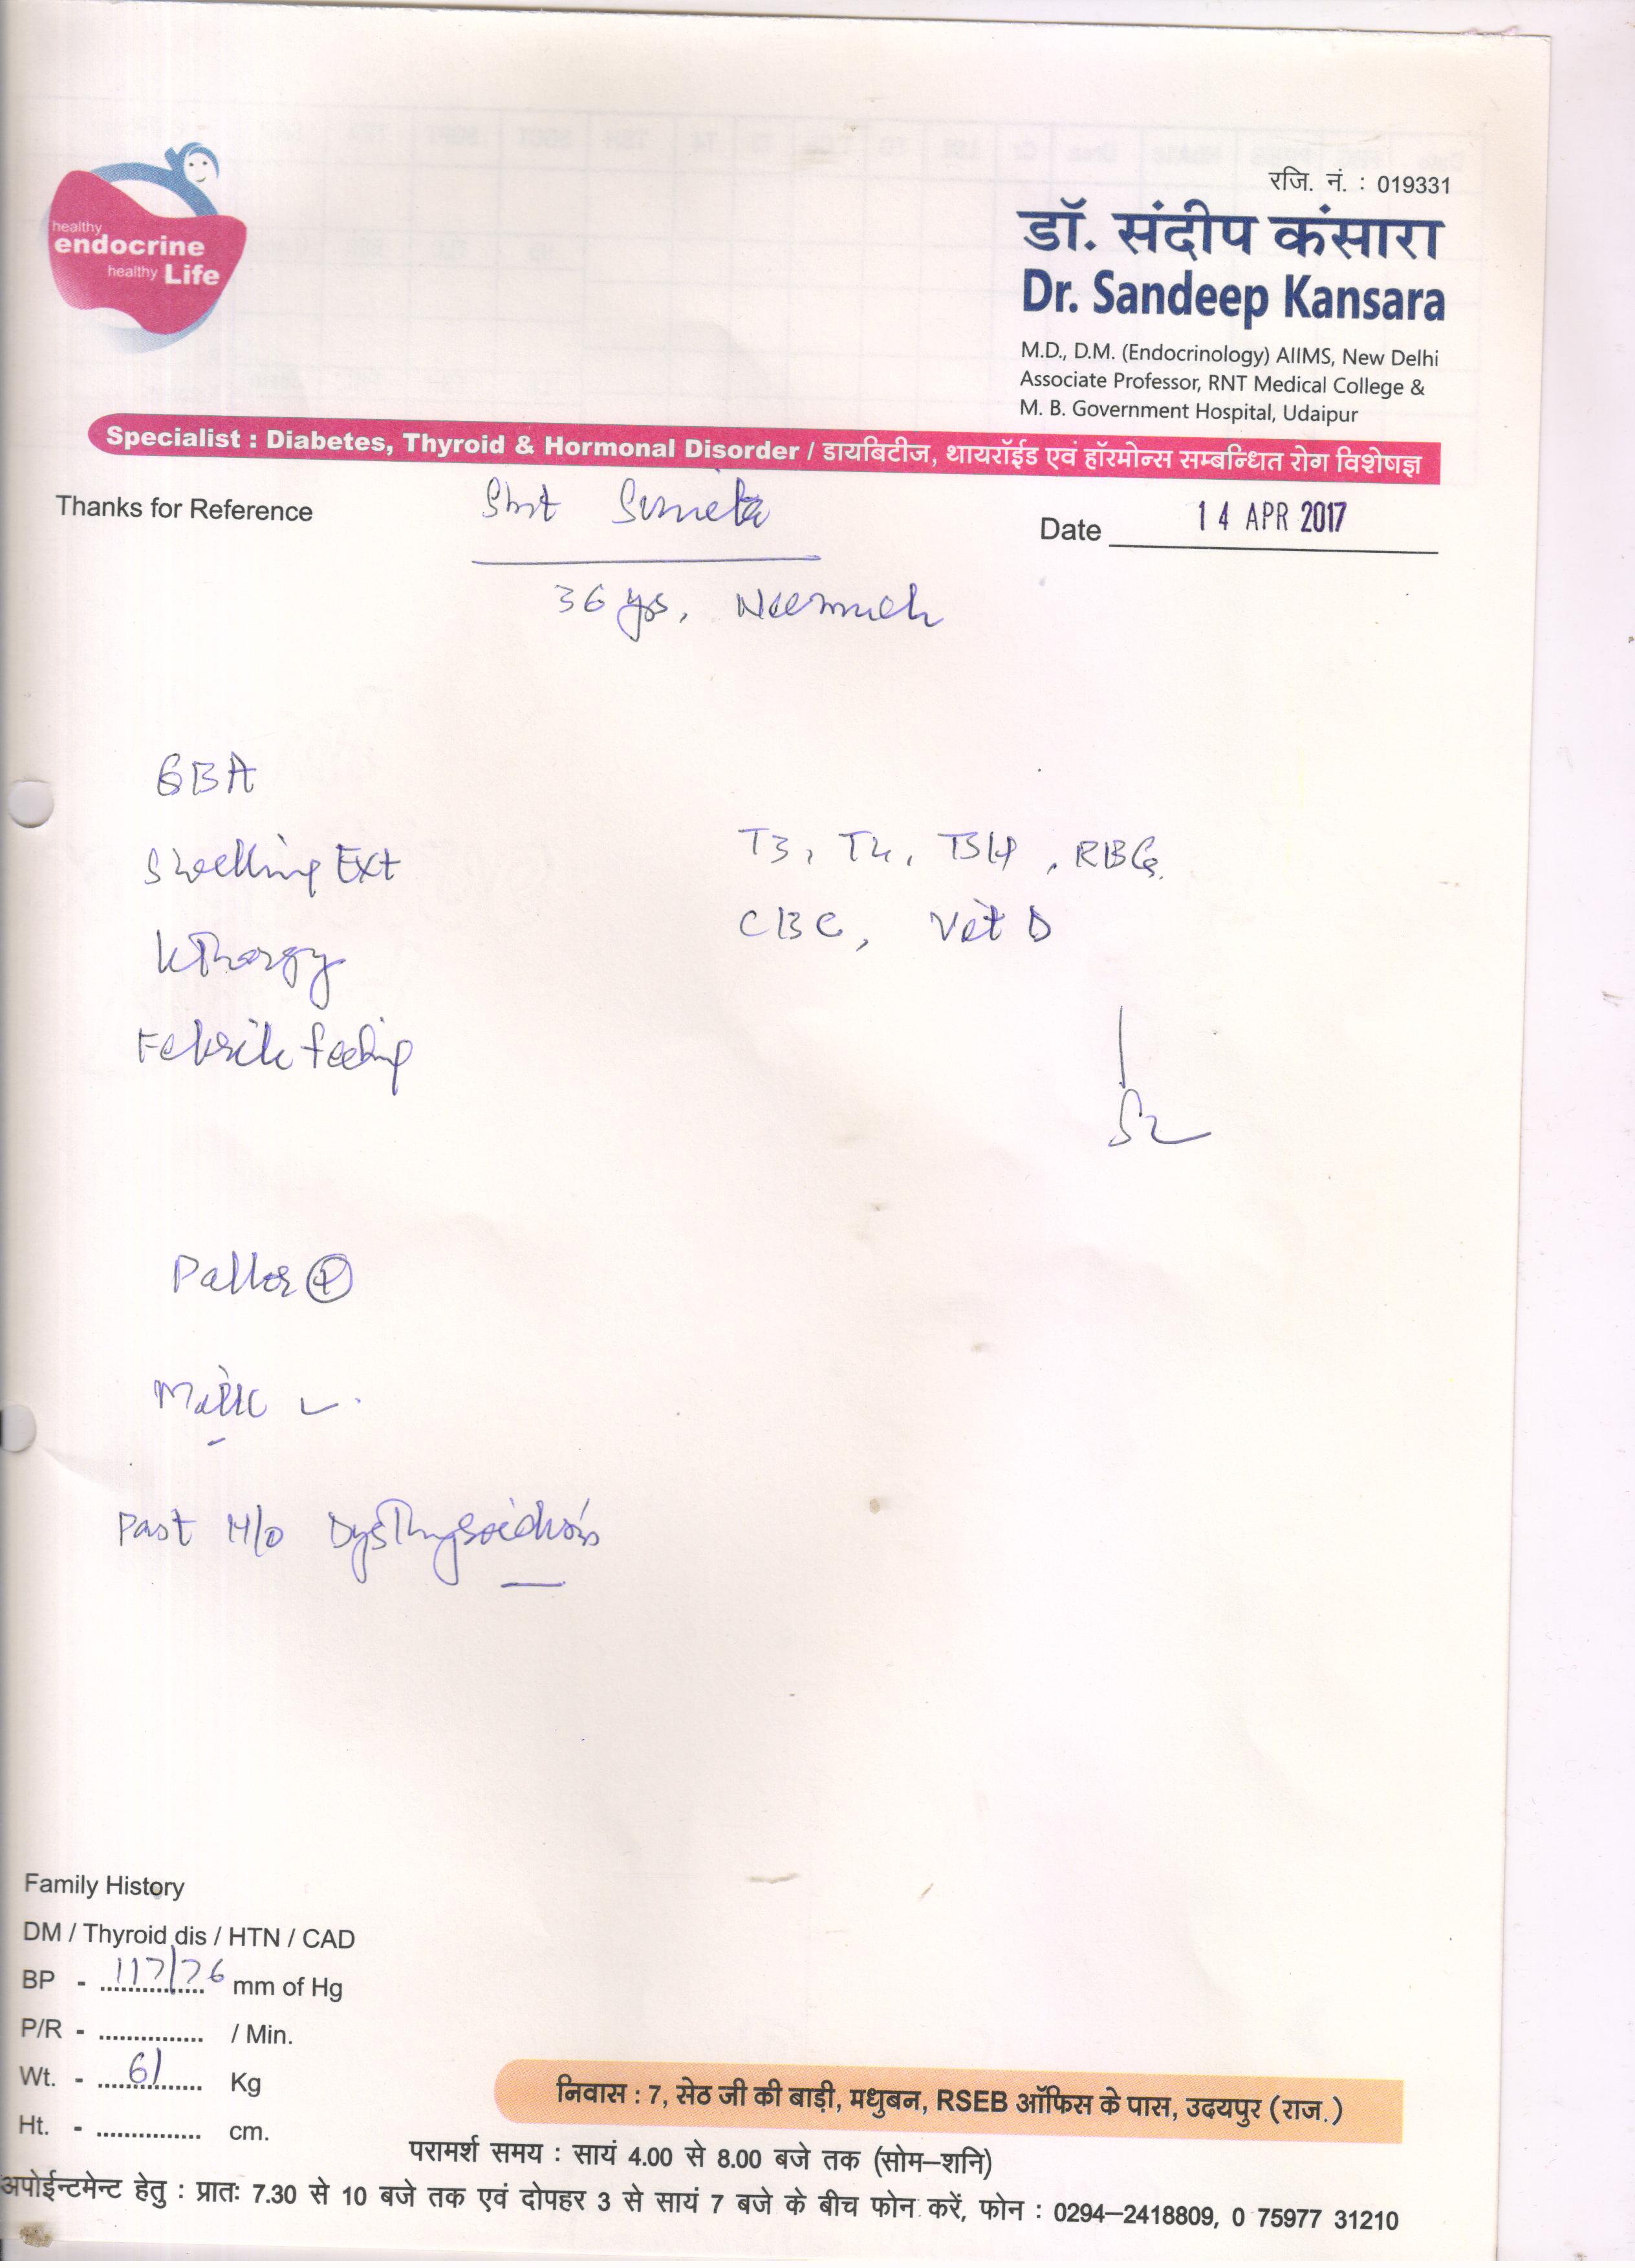 healthy
endocrine
healthy Life
रजि. नं. : 019331
डॉ. संदीप कंसारा
Dr. Sandeep Kansara
M.D., D.M. (Endocrinology) AIIMS, New Delhi
Associate Professor, RNT Medical College &
M. B. Government Hospital, Udaipur
Specialist : Diabetes, Thyroid & Hormonal Disorder / डायबिटीज, थायरॉईड एवं हॉरमोन्स सम्बन्धित रोग विशेषज्ञ
Thanks for Reference Smt Sunita Date 14 APR 2017
36 yrs, Neemuch
GBA
Swelling Ext
T3, T4, TSH, RBG.
CBC, Vit D
Lethargy
Febrile feeling
Pallor +
Past H/o Dysthyroidism
Family History
DM / Thyroid dis / HTN / CAD
BP - 117/76 mm of Hg
P/R - ............... / Min.
Wt. - 61 Kg
Ht. - ............... cm.
निवास : 7, सेठ जी की बाड़ी, मधुबन, RSEB ऑफिस के पास, उदयपुर (राज.)
परामर्श समय : सायं 4.00 से 8.00 बजे तक (सोम–शनि)
अपोईन्टमेन्ट हेतु : प्रातः 7.30 से 10 बजे तक एवं दोपहर 3 से सायं 7 बजे के बीच फोन करें, फोन : 0294–2418809, 0 75977 31210